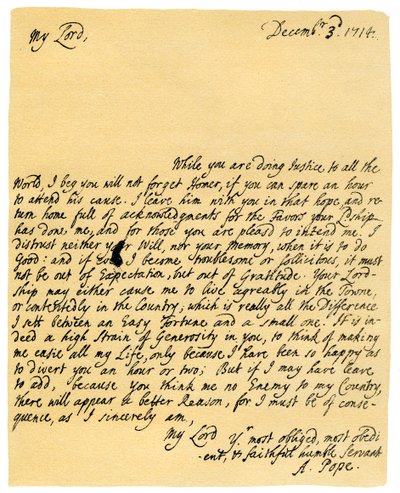 My Lord,
Decemb.r 3.d 1714.
While you are doing Justice to all the
World, I beg you will not forget Homer, if you can spare an hour
to attend his cause. I leave him with you in that hope and re-
turn home full of acknowledgments for the Favors your L.dship
has done me, and for those you are pleasd to intend me. I
distrust neither your Will, nor your Memory, when it is to do
Good: and if ever I become troublesome or Sollicitous, it must
not be out of Expectation, but out of Gratitude. Your Lord-
ship may either cause me to live agreably in the Towne,
or contentedly in the Country; which is really all the Difference
I sett between an Easy Fortune and a small one. It is in-
deed a high Strain of Generosity in you, to think of making
me easie all my Life, only because I have been so happy as
to divert you an hour or two; But if I may have leave
to add, because you think me no Enemy to my Country,
there will appear a better Reason, for I must be of conse-
quence, as I sincerely am,
My Lord Y.r most obliged, most obedi-
ent, & faithful humble servant
A. Pope.